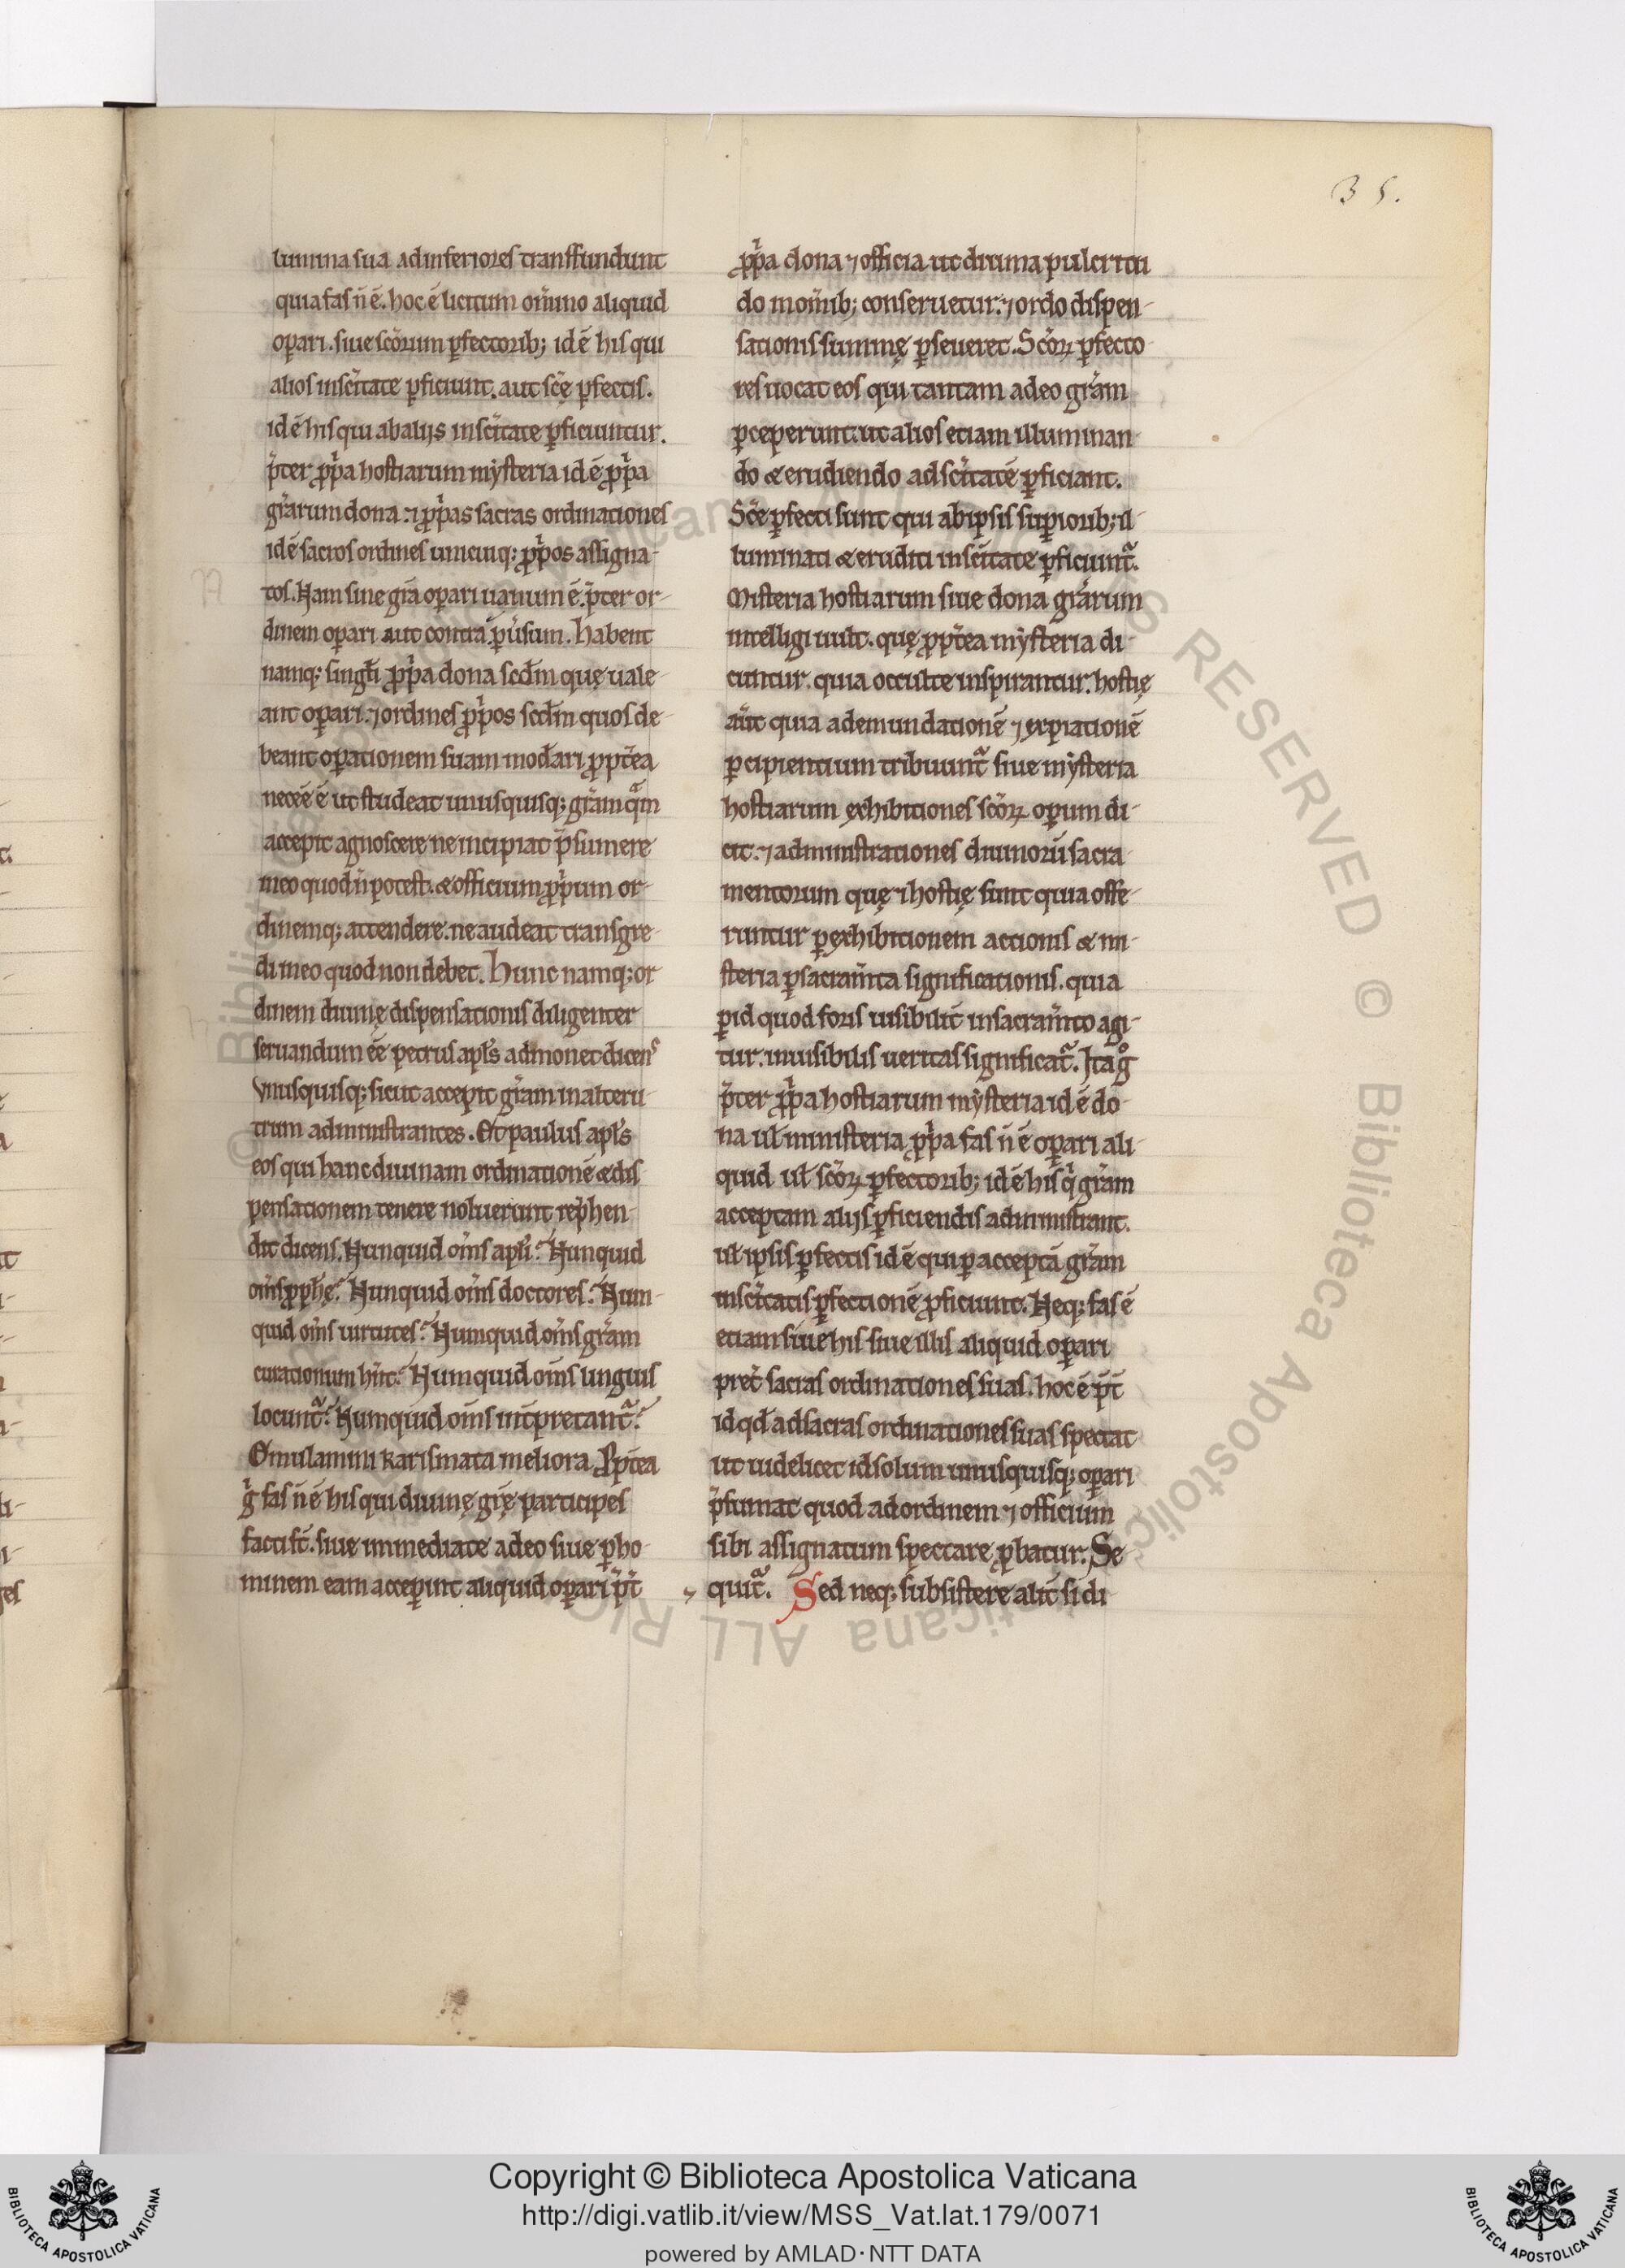 35.
lumina sua ad inferiores transfundunt
quia fas n̄ ē. hoc ē licitum om̄ino aliquid
op̄ari. siue sc̄orum ꝑfectorib; id ē his qui
alios in sc̄itate ꝑficiunt. aut sc̄ę ꝑfectis.
id ē his qui ab alijs in sc̄itate ꝑficiuntur.
p̄ter ꝓpͥa hostiarum mysteria id ē ꝓpͥa
gr̄arum dona. ⁊ ꝓpͥas sacras ordinationes
id ē sacros ordines unicuiq; ꝓpͥos assigna-
tos. Nam sine gr̄a oꝑari uanum ē. p̄ter or-
dinem oꝑari aut contra ꝑuersum. Habent
namq; singl̄i ꝓpͥa dona sc̄dm quę uale-
ant oꝑari. ⁊ ordines ꝓpͥos sc̄dm quos de-
beant oꝑationem suam mod̄ari ꝓpt̄ea
nec̄e ē ut studeat unusquisq; gr̄am qͣm
accepit agnoscere ne incipiat p̄sumere
in eo quod n̄ potest. & officium ꝓpͥum or-
dinemq; attendere. ne audeat transgre-
di in eo quod non debet. Hunc namq; or-
dinem diuinę dispensationis diligenter
seruandum ēe petrus apl̄s admonet dicens
Vnusquisq; sicut accepit gr̄am in alteru-
trum administrantes. Et paulus apl̄s
eos qui hanc diuinam ordinationē & dis-
pensationem tenere noluerunt rep̄hen-
dit dicens. Nunquid om̄s apl̄i? Nunquid
om̄s ꝓph̄ę? Nunquid om̄s doctores? Num-
quid om̄s uirtutes? Numquid om̄s gr̄am
curationum hn̄t? Numquid om̄s linguis
locuntͣ? Numquid om̄s int̄pretantͣ?
Emulamini karismata meliora. Ꝓpt̄ea
gͥ fas n̄ ē his qui diuinę gr̄ę participes
facti st̄. siue immediate a deo siue ꝑ ho-
minem eam acceꝑint aliquid oꝑari p̄t̄
ꝓpͥa dona ⁊ officia ut diuina pulcritu-
do in om̄ib; conseruetur. ⁊ ordo dispen-
sationis summę ꝑseueret. Sc̄oꝝ ꝑfecto-
res uocat eos qui tantam a deo gr̄am
ꝑceperunt. ut alios etiam illuminan-
do & erudiendo ad sc̄itatē ꝑficiant.
Sc̄e ꝑfecti sunt qui ab ipsis suꝑiorib; il-
luminati & eruditi in sc̄itate ꝑficiuntͣ.
Misteria hostiarum siue dona gr̄arum
intelligi uult. quę ꝓpt̄ea mysteria di-
cuntur. quia occulte inspirantur. hostię
aūt quia ad emundationē ⁊ expiationē
ꝑcipientium tribuuntͣ siue mysteria
hostiarum exhibitiones sc̄oꝝ oꝑum di-
cit. ⁊ administrationes diuinorū sacra-
mentorum quę ⁊ hostię sunt quia offe-
runtur ꝑ exhibitionem actionis & mi-
steria ꝑ sacram̄ta significationis. quia
ꝑ id quod foris uisibilit̄ in sacram̄to agi-
tur. inuisibilis ueritas significatͣ. Ita gͦ
p̄ter ꝓpͥa hostiarum mysteria id ē do-
na ul̄ ministeria ꝓpͥa fas n̄ ē oꝑari ali-
quid ul̄ sc̄oꝝ ꝑfectorib; id ē his qͥ gr̄am
acceptam alijs ꝑficiendis administrant.
ul̄ ipsis ꝑfectis id ē qui ꝑ acceptā gr̄am
in sc̄itatis ꝑfectionē ꝓficiunt. Neq; fas ē
etiam siue his siue illis aliquid oꝑari
pret̄ sacras ordinationes suas. hoc ē p̄t̄
id qd̄ ad sacras ordinationes suas spectat
ut uidelicet id solum unusquisq; oꝑari
p̄sumat quod ad ordinem ⁊ officium
sibi assignatum spectare ꝓbatur. Se-
quitͣ. Sed neq; subsistere alit̄ si di-
© Biblioteca Apostolica Vaticana ALL RIGHTS RESERVED
Copyright © Biblioteca Apostolica Vaticana
http://digi.vatlib.it/view/MSS_Vat.lat.179/0071
powered by AMLAD·NTT DATA
BIBLIOTECA APOSTOLICA VATICANA
BIBLIOTECA APOSTOLICA VATICANA